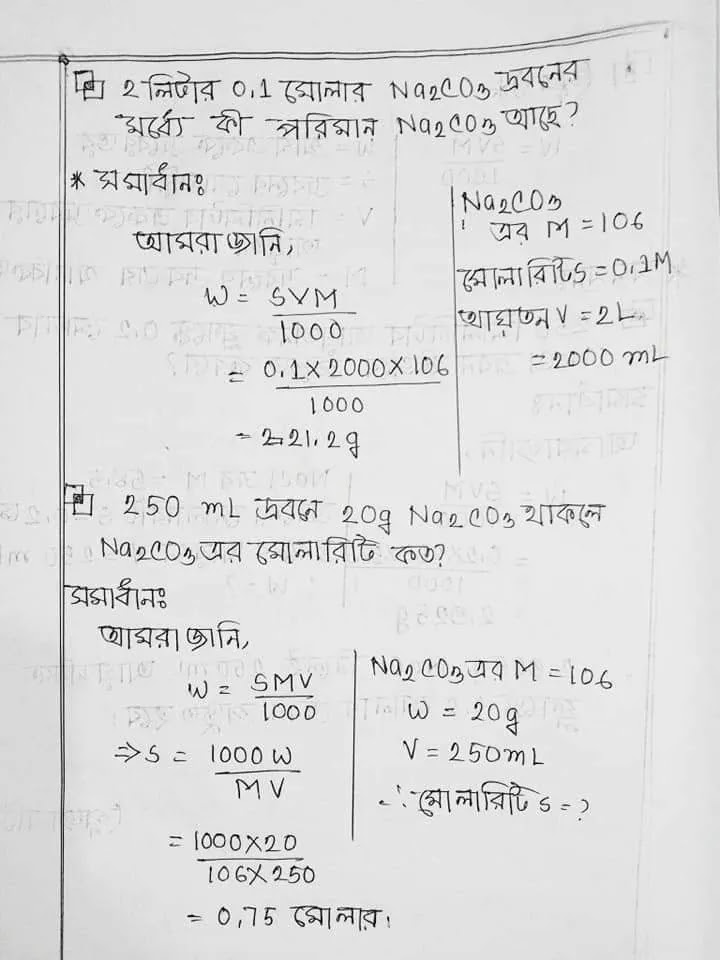 2 লিটার 0.1 মোলার Na2CO3 দ্রবনের
মর্ধ্যে কী পরিমান Na2CO3 আছে?
* সমার্ধানঃ
আমরা জানি,
W = SVM
1000
= 0.1×2000×106
1000
= 21.2g
Na2CO3
এর M = 106
মোলারিটি S = 0.1M
আয়তন V = 2L
= 2000 mL
250 mL দ্রবনে 20g Na2CO3 থাকলে
Na2CO3 এর মোলারিটি কত?
সমার্ধানঃ
আমরা জানি,
W = SMV
1000
⇒ S = 1000 W
MV
= 1000×20
106×250
= 0,75 মোলার।
Na2CO3 এর M = 106
W = 20g
V = 250mL
∴ মোলারিটি S = ?